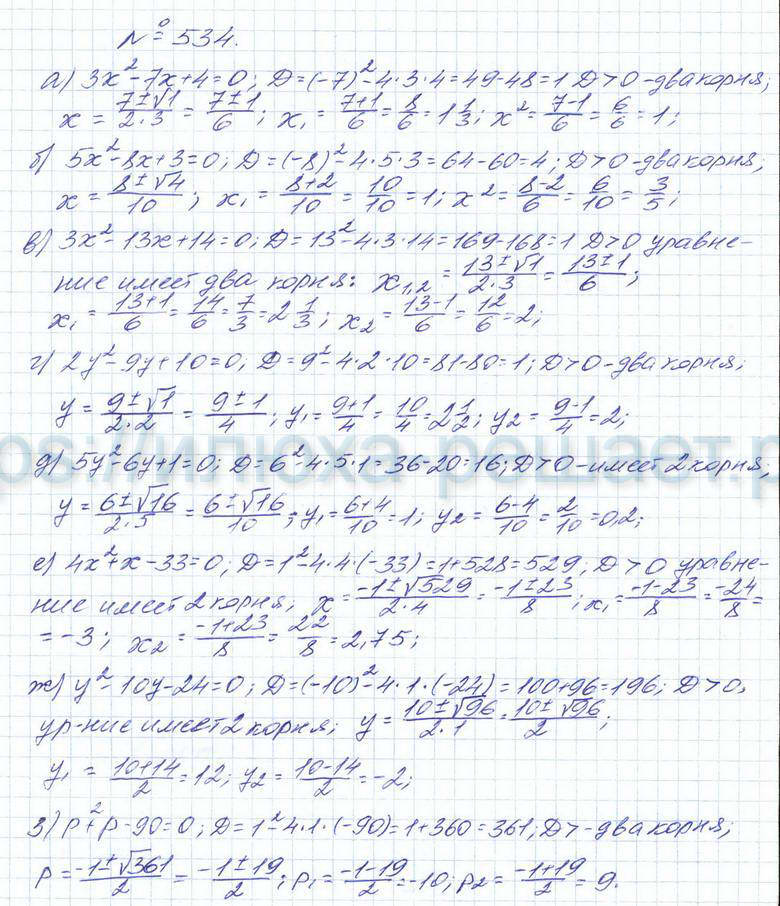 № 534.
а) 3x² - 7x + 4 = 0; D = (-7)² - 4·3·4 = 49 - 48 = 1 D > 0 - два корня;
x = (7 ± √1)/(2·3) = (7 ± 1)/6; x₁ = (7+1)/6 = 8/6 = 1 1/3; x² = (7-1)/6 = 6/6 = 1;
б) 5x² - 8x + 3 = 0; D = (-8)² - 4·5·3 = 64 - 60 = 4; D > 0 - два корня;
x = (8 ± √4)/10; x₁ = (8+2)/10 = 10/10 = 1; x² = (8-2)/6 = 6/10 = 3/5;
в) 3x² - 13x + 14 = 0; D = 13² - 4·3·14 = 169 - 168 = 1 D > 0 уравне-
ние имеет два корня: x₁,₂ = (13 ± √1)/(2·3) = (13 ± 1)/6;
x₁ = (13+1)/6 = 14/6 = 7/3 = 2 1/3; x₂ = (13-1)/6 = 12/6 = 2;
г) 2y² - 9y + 10 = 0; D = 9² - 4·2·10 = 81 - 80 = 1; D > 0 - два корня;
y = (9 ± √1)/(2·2) = (9 ± 1)/4; y₁ = (9+1)/4 = 10/4 = 2 1/2; y₂ = (9-1)/4 = 2;
ps://илюха-решает.р
д) 5y² - 6y + 1 = 0; D = 6² - 4·5·1 = 36 - 20 = 16; D > 0 - имеет 2 корня;
y = (6 ± √16)/(2·5) = (6 ± √16)/10; y₁ = (6+4)/10 = 1; y₂ = (6-4)/10 = 2/10 = 0,2;
е) 4x² + x - 33 = 0; D = 1² - 4·4·(-33) = 1 + 528 = 529; D > 0 уравне-
ние имеет 2 корня; x = (-1 ± √529)/(2·4) = (-1 ± 23)/8; x₁ = (-1-23)/8 = -24/8 =
= -3; x₂ = (-1+23)/8 = 22/8 = 2,75;
ж) y² - 10y - 24 = 0; D = (-10)² - 4·1·(-24) = 100 + 96 = 196; D > 0,
ур-ние имеет 2 корня; y = (10 ± √96)/(2·1) = (10 ± √96)/2;
y₁ = (10+14)/2 = 12; y₂ = (10-14)/2 = -2;
з) p² + p - 90 = 0; D = 1² - 4·1·(-90) = 1 + 360 = 361; D > - два корня;
p = (-1 ± √361)/2 = (-1 ± 19)/2; p₁ = (-1-19)/2 = -10; p₂ = (-1+19)/2 = 9.